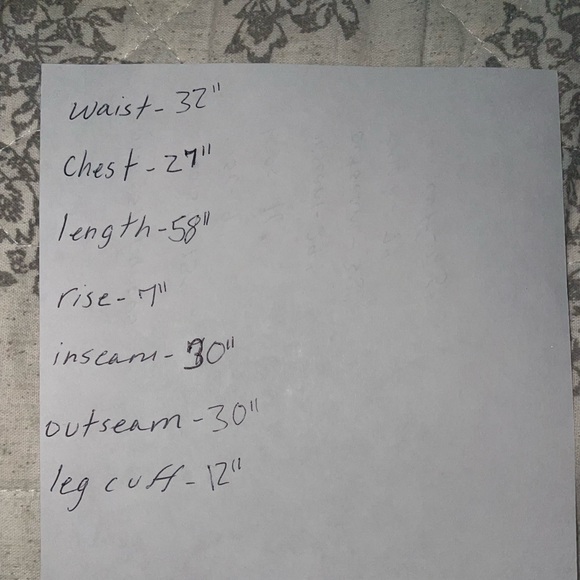 Waist- 32"
Chest- 27"
length-58"
rise- 7"
inseam- 30"
outseam-30"
leg cuff-12"